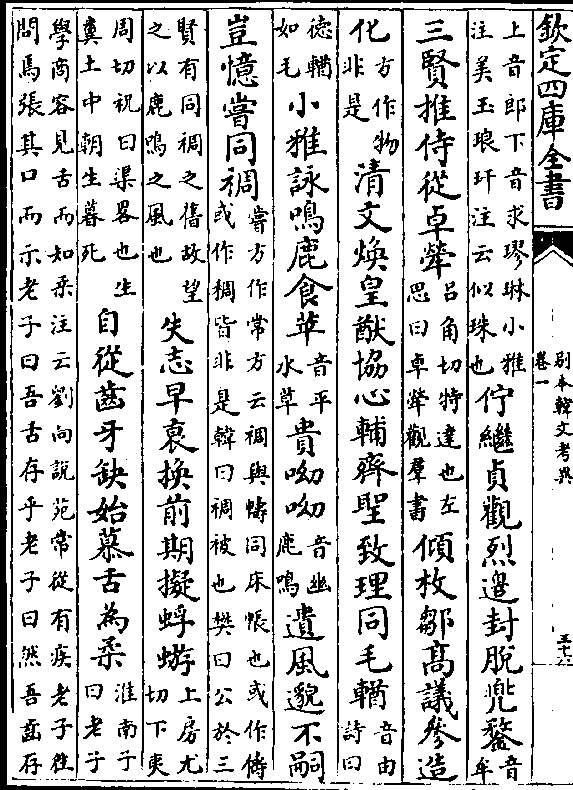 欽定四庫全書
别本韓文考異
卷一
五十六
上音郎下音求璆琳小雅
注美玉琅玕注云似珠也
佇繼貞觀烈邉封脱兠鍪
音
牟
三賢推侍從卓犖
吕角切特達也左
思曰卓犖觀羣書
傾枚鄒髙議參造
化
方作物
非是
清文煥皇猷協心輔齊聖致理同毛輶
音由
詩曰
德輶
如毛
小雅詠鳴鹿食苹
音平
水草
貴呦呦
音幽
鹿鳴
遺風邈不嗣
豈憶嘗同裯
嘗方作常方云裯與幬同床帳也或作儔
或作稠皆非是韓曰裯被也樊曰公於三
賢有同裯之舊故望
之以鹿鳴之風也
失志早衰換前期擬蜉蝣
上房尤
切下夷
周切祝曰渠畧也生
糞土中朝生暮死
自從齒牙缺始慕舌為柔
淮南子
曰老子
學商容見舌而知柔注云劉向説苑常從有疾老子往
問焉張其口而示老子曰吾舌存乎老子曰然吾齒存